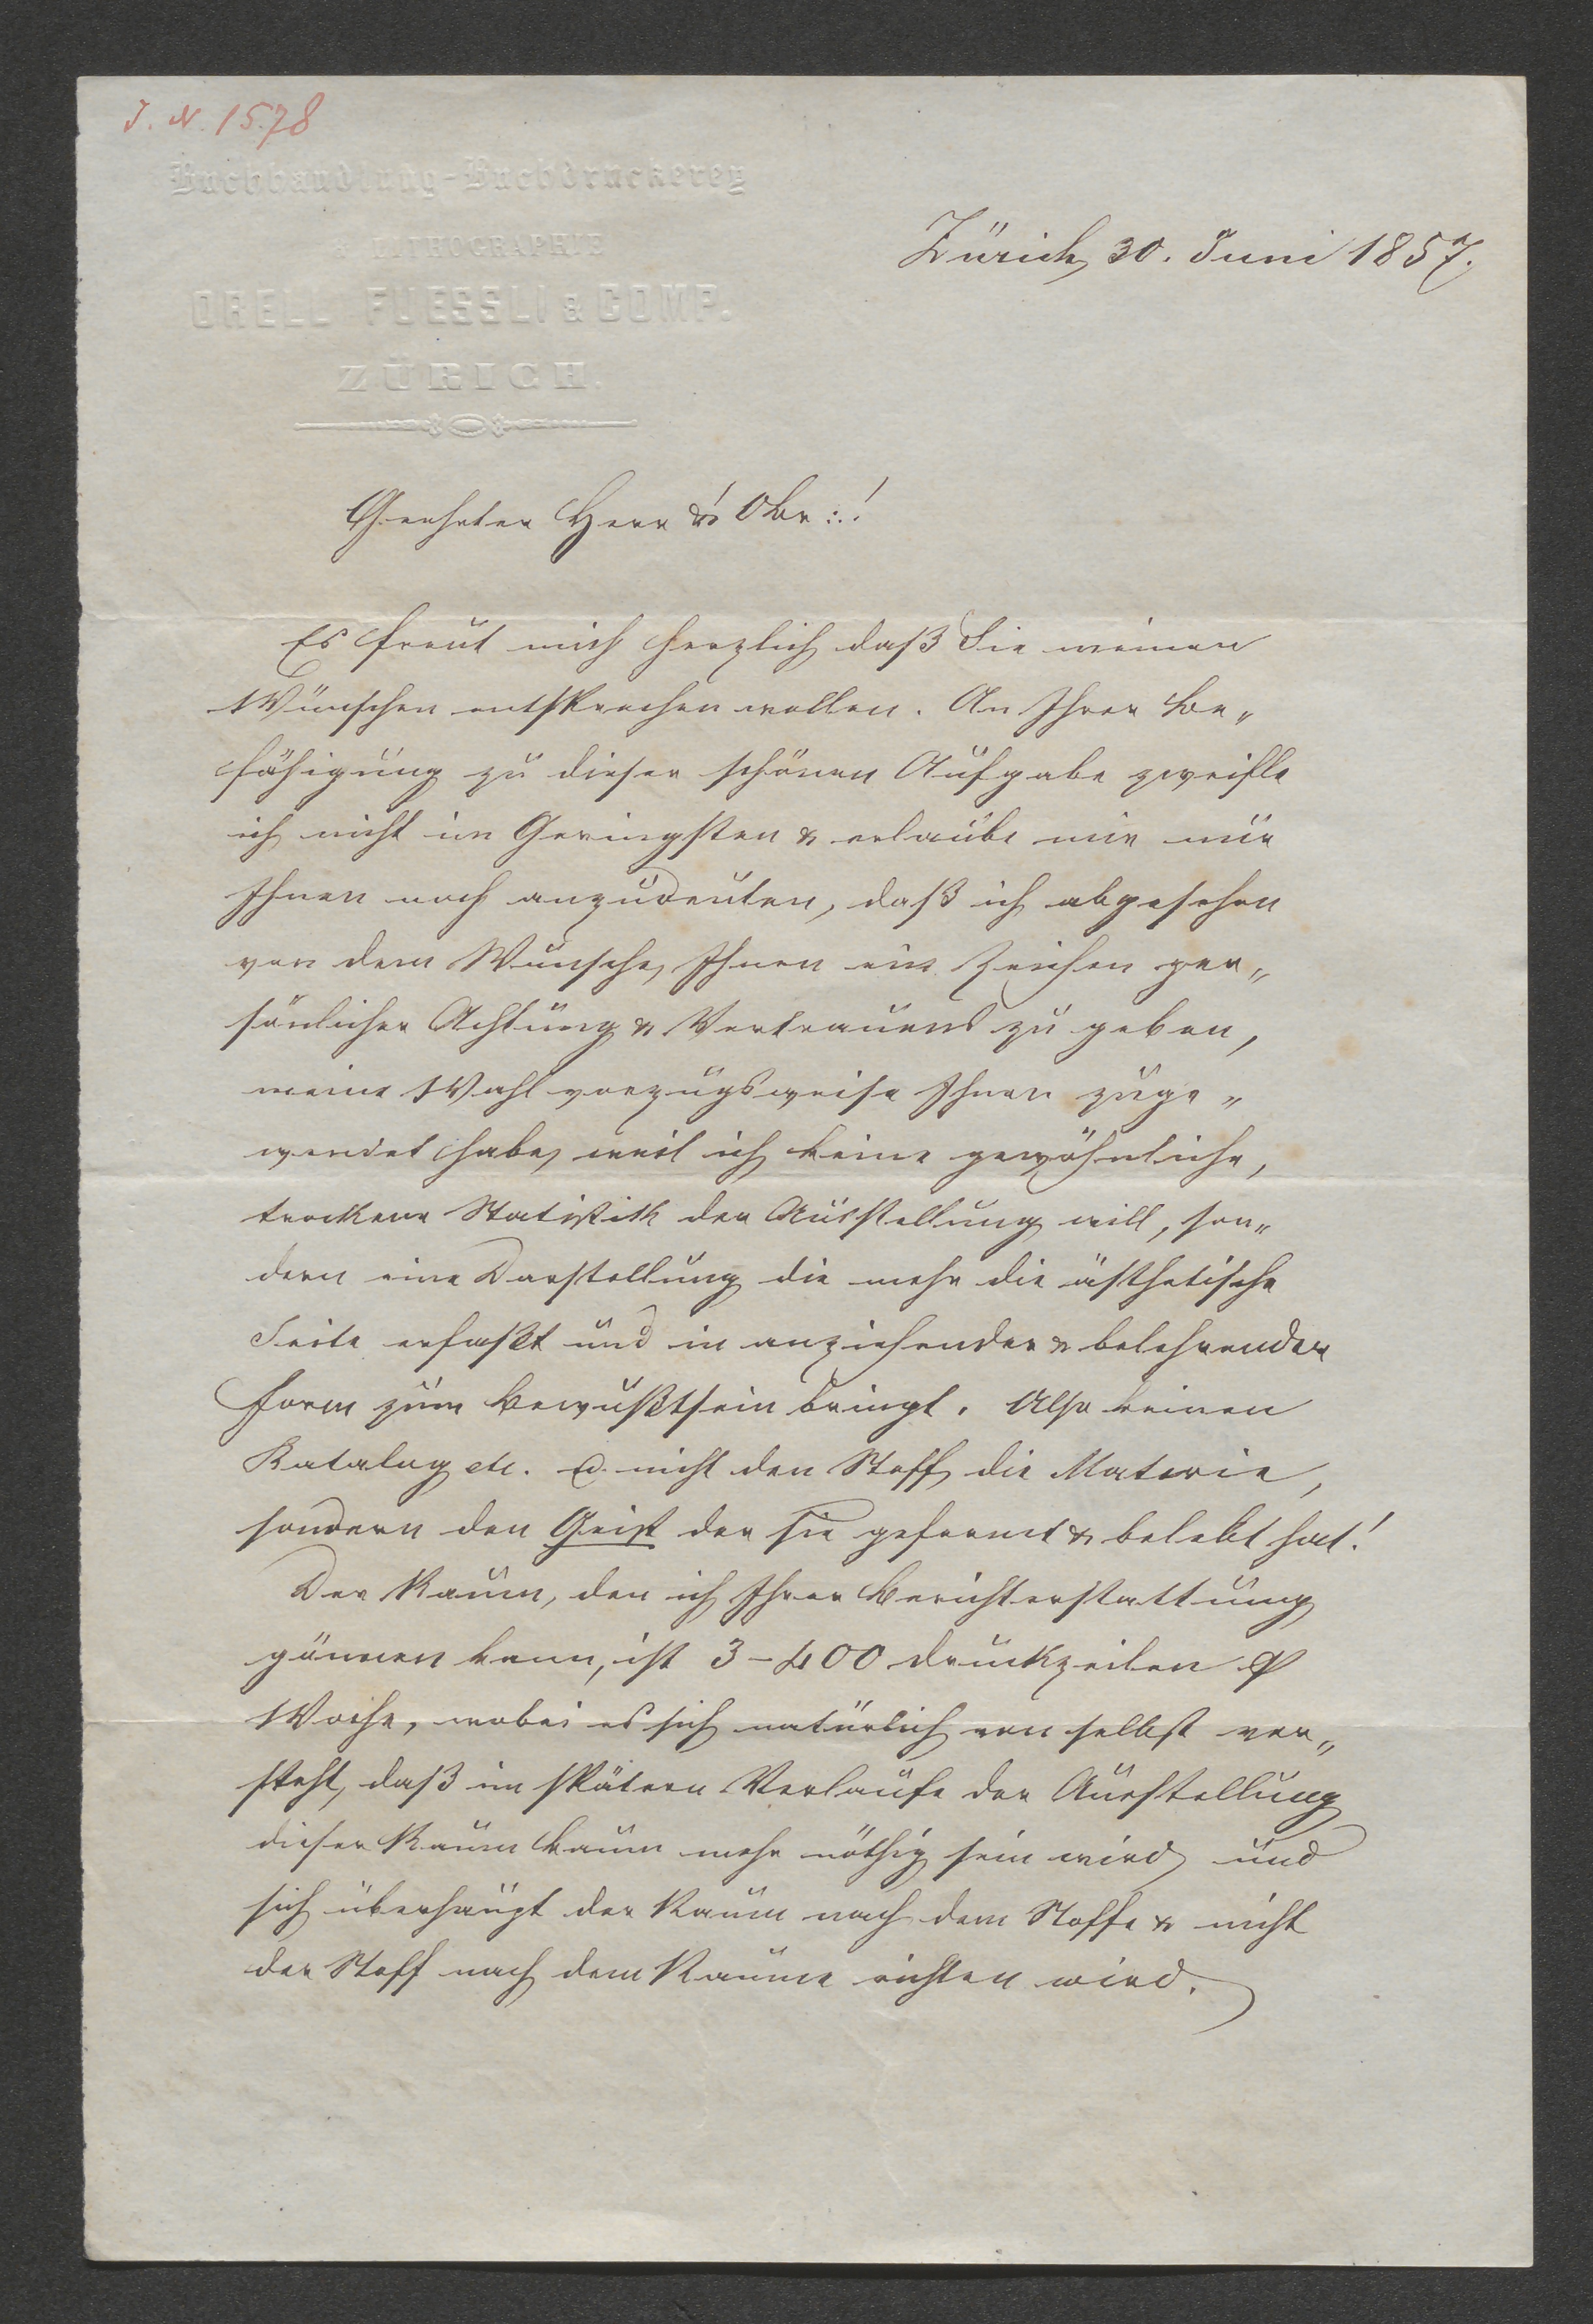 J. N. 1578
Buchhandlung-Buchdruckerey
LITHOGRAPHIE
ORELL FUESSLI & COMP.
ZÜRICH.
Zürich, 30. Juni 1857.
Geehrter Herr & Obr:.!
Es freut mich herzlich daß Sie meinen
Wünschen entsprechen wollen. An Ihrer Be„
fähigung zu dieser schönen Aufgabe zweifle
ich nicht im Geringsten & erlaube mir nur
Ihnen noch anzudeuten, daß ich abgesehen
von dem Wunsche, Ihnen ein Zeichen per„
sönlicher Achtung & Vertrauens zu geben,
meine Wahl vorzugsweise Ihnen zuge„
wendet habe, weil ich keine gewöhnliche,
trockene Statistik der Ausstellung will, son„
dern eine Darstellung die mehr die ästhetische
Seite erfaßt und in anziehender & belehrender
Form zum Bewußtsein bringt. Also keinen
Katalog etc. u. nicht den Stoff, die Materie,
sondern den Geist der sie geformt & belebt hat!
Der Raum, den ich Ihrer Berichterstattung
gönnen kann, ist 3-400 Druckzeilen ⅌
Woche, wobei es sich natürlich von selbst ver„
steht, daß im spätern Verlaufe der Ausstellung
dieser Raum kaum mehr nöthig sein wird und
sich überhaupt der Raum nach dem Stoffe & nicht
der Stoff nach dem Raume richten wird.